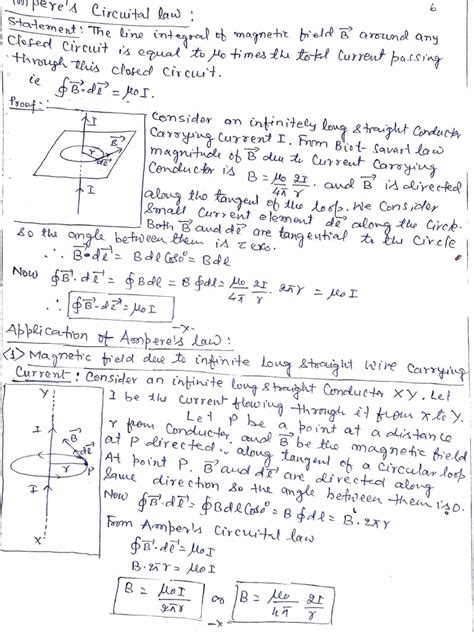 Ampere's Circuital law :
6
Statement : The line integral of magnetic field B⃗ around any
closed circuit is equal to μ₀ times the total current passing
through this closed circuit.
ie ∮B⃗·dℓ⃗ = μ₀I.
Proof :
I
B⃗
r
dℓ⃗
I
Consider an infinitely long straight conductor
carrying current I. From Biot-Savart law
magnitude of B⃗ due to current carrying
conductor is B = μ₀/4π 2I/r. and B⃗ is directed
along the tangent of the loop. We consider
small current element dℓ⃗ along the circle.
Both B⃗ and dℓ⃗ are tangential to the circle
so the angle between them is zero.
∴ B⃗·dℓ⃗ = Bdℓcos0° = Bdℓ
Now ∮B⃗·dℓ⃗ = ∮Bdℓ = B∮dℓ = μ₀/4π 2I/r · 2πr = μ₀I
∴ ∮B⃗·dℓ⃗ = μ₀I
-x-
Application of Ampere's law :
(1) Magnetic field due to infinite long straight wire carrying
Current : Consider an infinite long straight conductor XY. Let
I be the current flowing through it from X to Y.
Let P be a point at a distance
r from conductor and B⃗ be the magnetic field
at P directed along tangent of a circular loop
At point P. B⃗ and dℓ⃗ are directed along
same direction so the angle between them is 0.
Now ∮B⃗·dℓ⃗ = ∮Bdℓcos0° = B∮dℓ = B·2πr
From Amper's Circuital law
∮B⃗·dℓ⃗ = μ₀I
B·2πr = μ₀I
B = μ₀I/2πr or B = μ₀/4π 2I/r
-x-
Y
I
B⃗
dℓ⃗
r
P
I
X